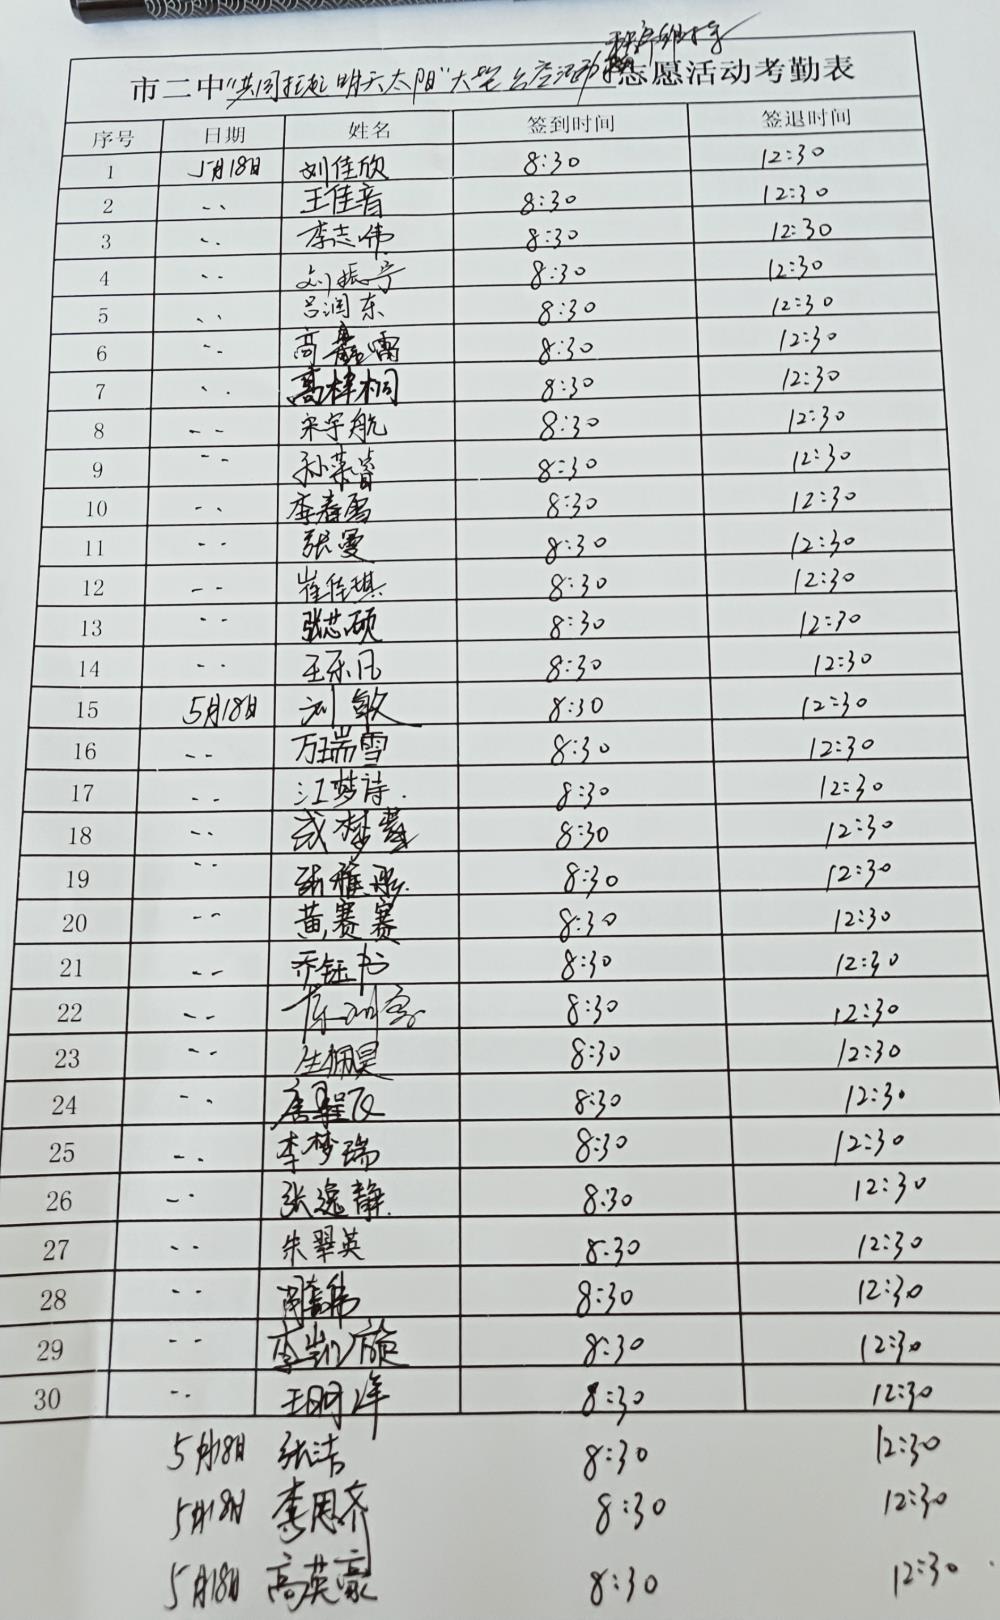 秩序维持
市二中"共同托起明天太阳"大型公益活动志愿活动考勤表
序号 日期 姓名 签到时间 签退时间
1 5月18日 刘佳欣 8:30 12:30
2 -- 王佳音 8:30 12:30
3 -- 李志伟 8:30 12:30
4 -- 刘振宇 8:30 12:30
5 -- 吕润东 8:30 12:30
6 -- 高 8:30 12:30
7 -- 高梓桐 8:30 12:30
8 -- 宋宇航 8:30 12:30
9 -- 孙荣 8:30 12:30
10 -- 李春雪 8:30 12:30
11 -- 张曼 8:30 12:30
12 -- 崔佳琪 8:30 12:30
13 -- 张芯硕 8:30 12:30
14 -- 王乐凡 8:30 12:30
15 5月18日 刘敏 8:30 12:30
16 -- 万瑞雪 8:30 12:30
17 -- 江梦诗. 8:30 12:30
18 -- 梦 8:30 12:30
19 -- 张雅 8:30 12:30
20 -- 黄赛赛 8:30 12:30
21 -- 乔钰书 8:30 12:30
22 -- 8:30 12:30
23 -- 佩昊 8:30 12:30
24 -- 唐 8:30 12:30
25 -- 李梦瑞 8:30 12:30
26 -- 张逸静. 8:30 12:30
27 -- 朱翠英 8:30 12:30
28 -- 8:30 12:30
29 -- 李凯旋 8:30 12:30
30 -- 王 8:30 12:30
5月18日 张洁 8:30 12:30
5月18日 李思齐 8:30 12:30
5月18日 高英豪 8:30 12:30